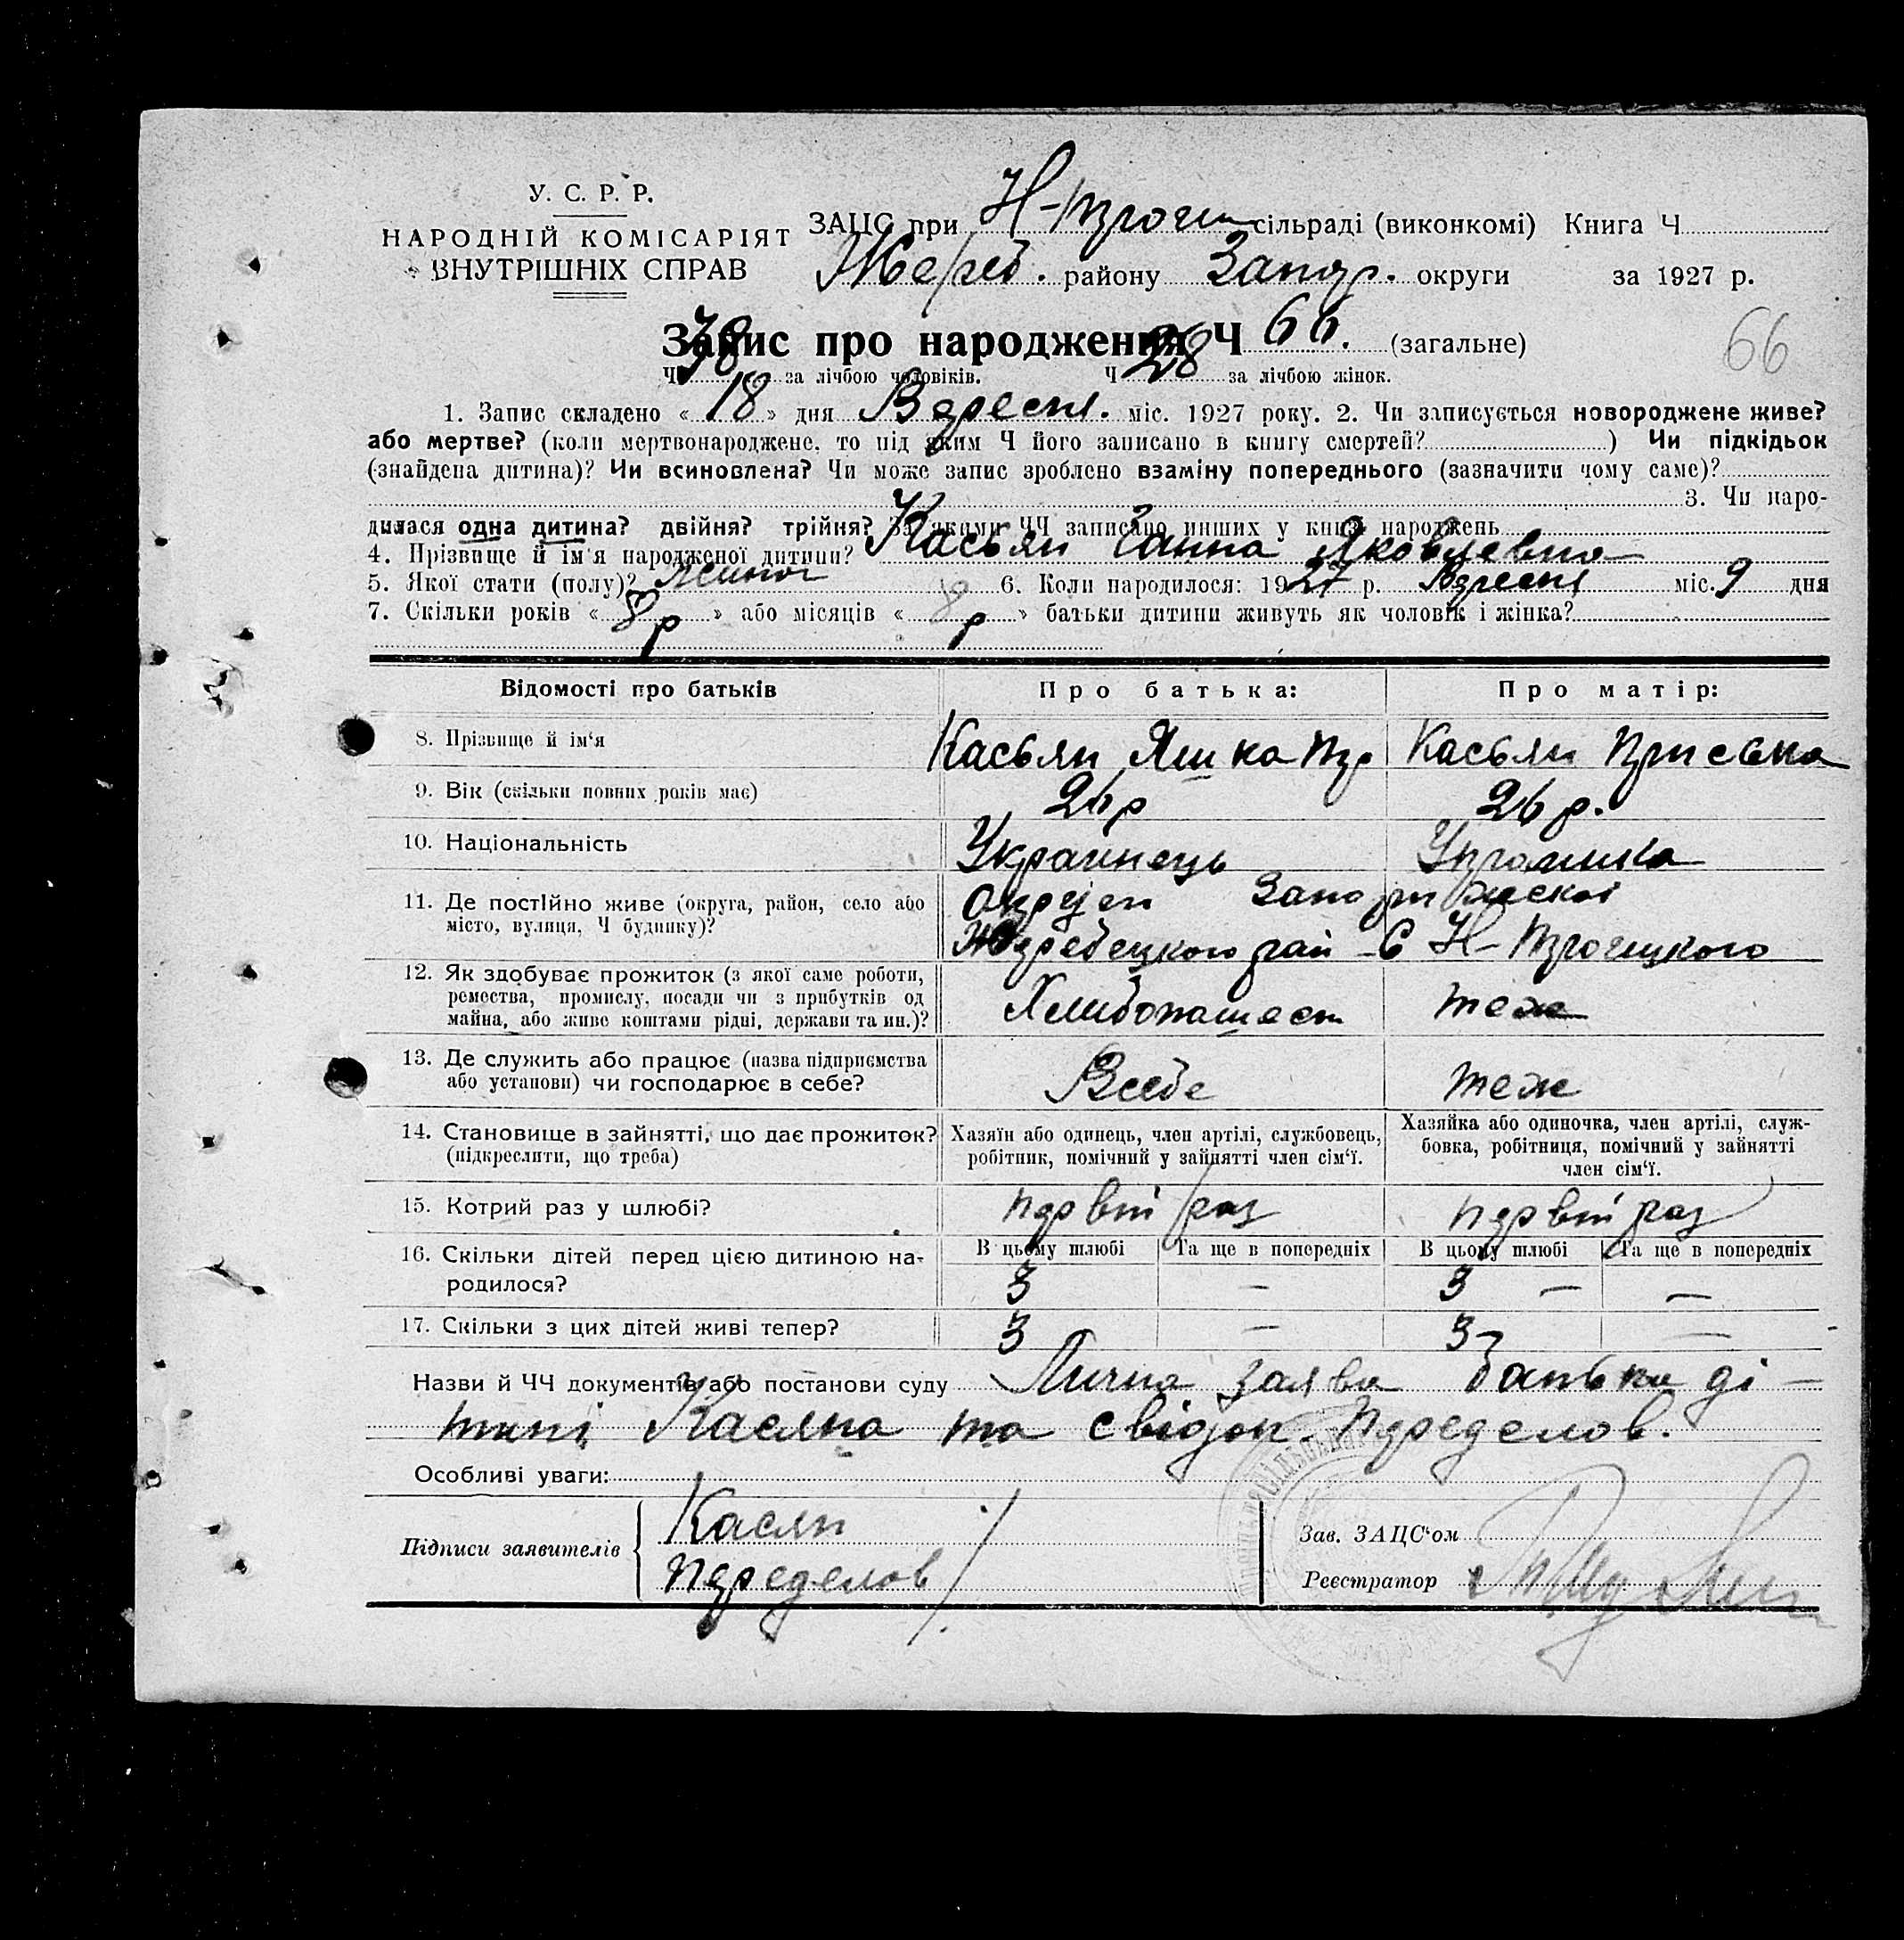 У. С. Р. Р.
НАРОДНІЙ КОМІСАРІЯТ
ВНУТРІШНІХ СПРАВ
ЗАЦС при Н- сільраді (виконкомі) Книга Ч
Жереб. району Запор. округи за 1927 р.
Запис про народження Ч 66. (загальне)
66
Ч 38 за лічбою чоловіків. Ч 28 за лічбою жінок.
1. Запис складено « 18 » дня Вересня. міс. 1927 року. 2. Чи записується новороджене живе?
або мертве? (коли мертвонароджене, то під яким Ч його записано в книгу смертей? ) Чи підкідьок
(знайдена дитина)? Чи всиновлена? Чи може запис зроблено взаміну попереднього (зазначити чому саме)?
3. Чи наро-
дилася одна дитина? двійня? трійня? За якими ЧЧ записано инших у книзі народжень
4. Прізвище й ім'я народженої дитини? Касьян Ганна Яковлевна
5. Якої стати (полу)? 6. Коли народилося: 1927 р. Вересня міс. 9 дня
7. Скільки років « 8 р » або місяців « 8 р » батьки дитини живуть як чоловік і жінка?
Відомості про батьків Про батька: Про матір:
8. Прізвище й ім'я Касьян Касьян
9. Вік (скільки повних років має) 26 р 26 р.
10. Національність Украинець
11. Де постійно живе (округа, район, село або
місто, вулиця, Ч будинку)?
12. Як здобуває прожиток (з якої саме роботи,
ремества, промислу, посади чи з прибутків од
майна, або живе коштами рідні, держави та ин.)? теж
13. Де служить або працює (назва підприємства
або установи) чи господарює в себе? Всебе теж
14. Становище в зайнятті, що дає прожиток?
(підкреслити, що треба)
Хазяїн або одинець, член артілі, службовець,
робітник, помічний у зайнятті член сім'ї.
Хазяйка або одиночка, член артілі, служ-
бовка, робітниця, помічний у зайнятті
член сім'ї.
15. Котрий раз у шлюбі? первій раз первій раз
16. Скільки дітей перед цією дитиною на-
родилося?
В цьому шлюбі Та ще в попередніх В цьому шлюбі Та ще в попередніх
3 — 3 — —
17. Скільки з цих дітей живі тепер? 3 — 3 —
Назви й ЧЧ документів або постанови суду Лична заява батька ді-
тині Касяна та свідок. Переделов.
Особливі уваги:
Підписи заявителів Касян
Переделов
Зав. ЗАЦС'ом
Реєстратор